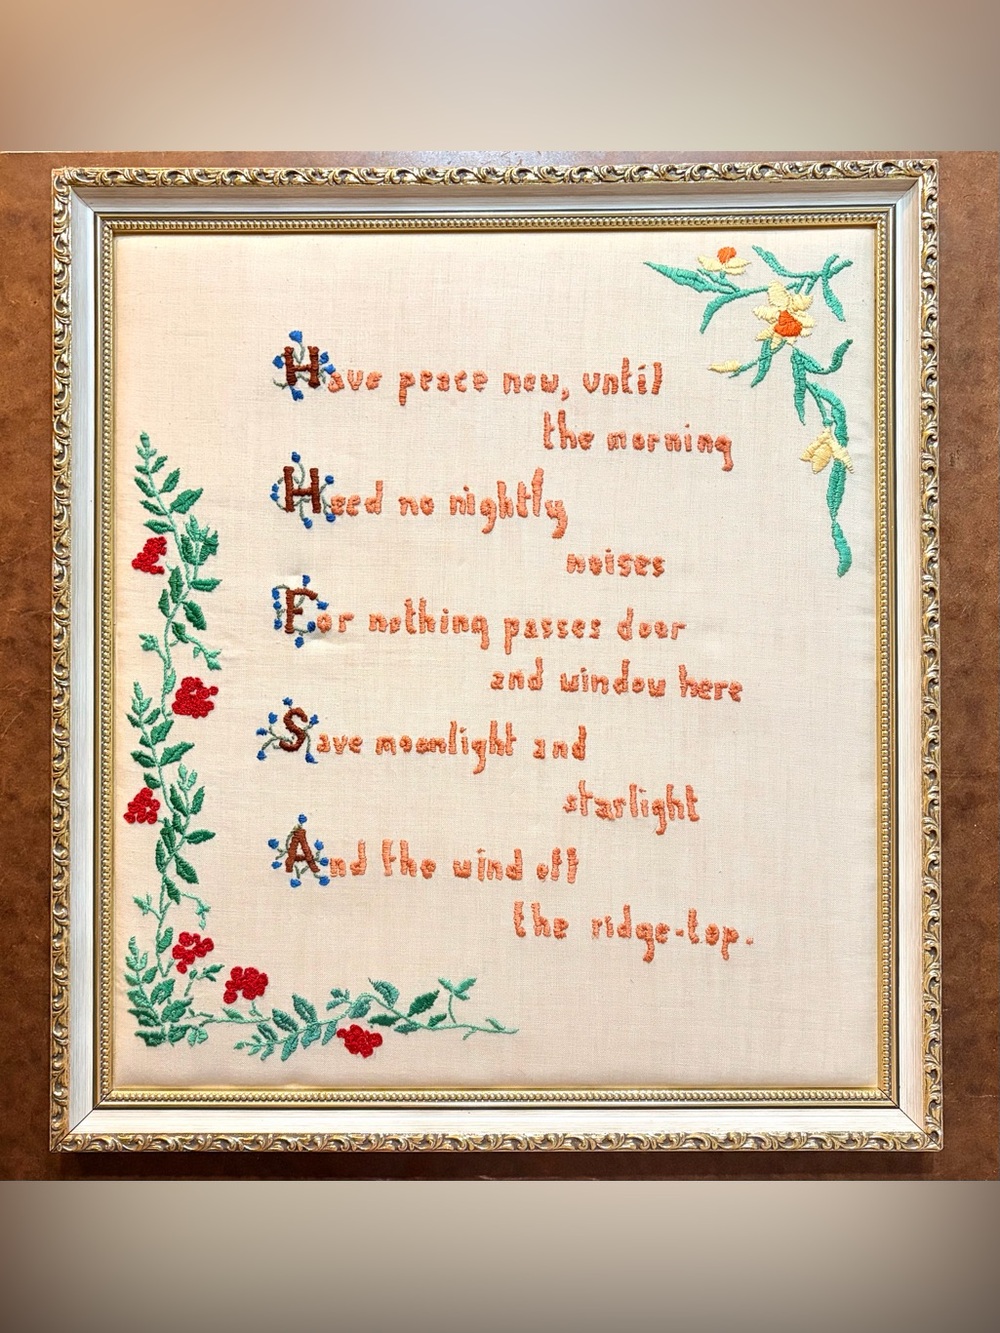 Have peace now, until
the morning
Heed no nightly
noises
For nothing passes door
and window here
Save moonlight and
starlight
And the wind off
the ridge-top.